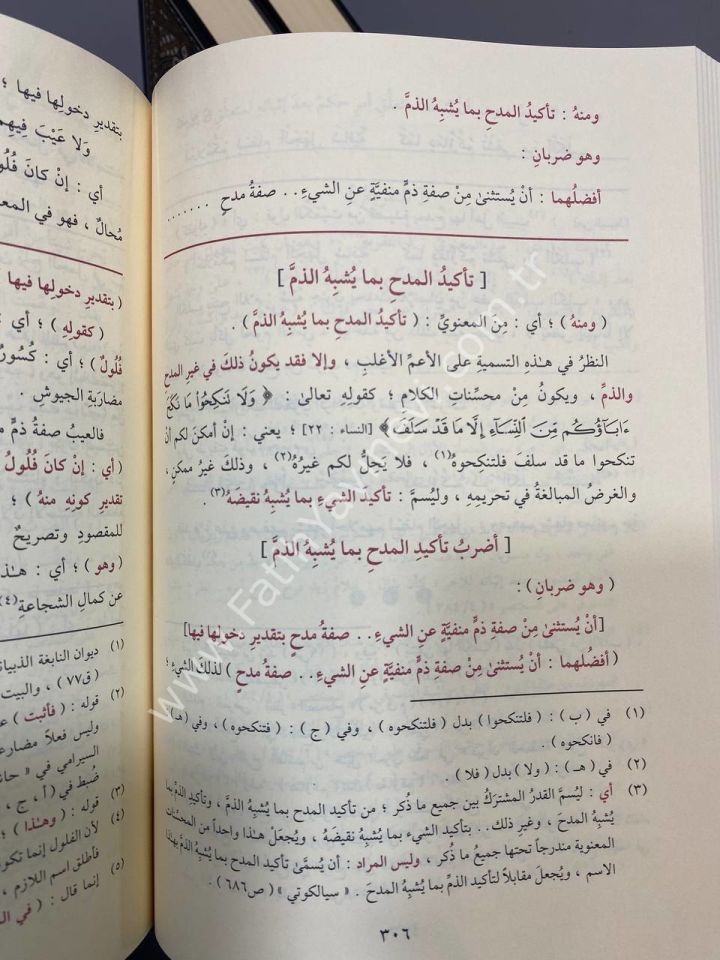 ومنهُ : تأكيدُ المدحِ بما يُشبِهُ الذمَّ .
وهو ضربانِ :
أفضلُهما : أنْ يُستثنىٰ مِنْ صفةِ ذمٍّ منفيَّةٍ عنِ الشيءِ . . صفةُ مدحٍ .......
[ تأكيدُ المدحِ بما يُشبِهُ الذمَّ ]
( ومنهُ ) ؛ أي : مِنَ المعنويِّ : ( تأكيدُ المدحِ بما يُشبِهُ الذمَّ ) .
النظرُ في هـٰذهِ التسميةِ على الأعمِّ الأغلبِ ، وإلا فقد يكونُ ذلكَ في غيرِ المدحِ
والذمِّ ، ويكونُ مِنْ محسِّناتِ الكلامِ ؛ كقولهِ تعالىٰ : ﴿ وَلَا تَنكِحُوا۟ مَا نَكَحَ
ءَابَآؤُكُم مِّنَ ٱلنِّسَآءِ إِلَّا مَا قَدْ سَلَفَ ﴾ [النساء : ٢٢] ؛ يعني : إنْ أمكنَ لكم أنْ
تنكحوا ما قد سلفَ فلتنكحوهُ(١) ، فلا يَحِلُّ لكم غيرُهُ(٢) ، وذلكَ غيرُ ممكنٍ ،
والغرضُ المبالغةُ في تحريمِهِ ، وليُسمَّ : تأكيدَ الشيءِ بما يُشبِهُ نقيضَهُ(٣) .
[ أضربُ تأكيدِ المدحِ بما يُشبِهُ الذمَّ ]
( وهو ضربانِ ) :
[أنْ يُستثنىٰ مِنْ صفةِ ذمٍّ منفيَّةٍ عنِ الشيءِ . . صفةُ مدحٍ بتقديرِ دخولِها فيها]
( أفضلُهما : أنْ يُستثنىٰ مِنْ صفةِ ذمٍّ منفيَّةٍ عنِ الشيءِ . . صفةُ مدحٍ ) لذلكَ الشيءِ ؛
(١) في ( ب ) : ( فلتنكحوا ) بدل ( فلتنكحوه ) ، وفي ( ج ) : ( فتنكحوه ) ، وفي ( هـ )
( فانكحوه ) .
(٢) في ( هـ ) : ( ولا ) بدل ( فلا ) .
(٣) أي : ليُسمَّ القدرُ المشتركُ بين جميع ما ذُكر ؛ من تأكيد المدح بما يُشبِهُ الذمَّ ، وتأكيد الذمِّ بما
يُشبِهُ المدحَ ، وغيرِ ذلك . . بتأكيد الشيء بما يُشبِهُ نقيضَهُ ، ويُجعَلْ هـٰذا واحداً من المحسِّنات
المعنوية مندرجاً تحتها جميعُ ما ذُكر ، وليس المراد : أن يُسمَّىٰ تأكيد المدح بما يُشبِهُ الذمَّ بهـٰذا
الاسم ، ويُجعلَ مقابلاً لتأكيد الذمِّ بما يُشبِهُ المدحَ . « سيالكوتي » ( ص٦٨٦ ) .
٣٠٦
بتقديرِ دخولِها فيها ؛
ولا عَيْبَ فيهم
أي : إنْ كانَ فُلُو
مُحالٌ ، فهو في المع
( بتقديرِ دخولِها فيها
( كقولِهِ ) ؛ أي :
فُلُولٌ ) ؛ أي : كُسُورٌ
مضاربَةِ الجيوشِ .
فالعيبُ صفةُ ذمٍّ م
( أي : إن كانَ فُلُولُ
تقديرِ كونِهِ منهُ ) ؛
للمقصودِ وتصريحٌ
( وهو ) ؛ أي : هـٰذ
عن كمالِ الشجاعةِ(٤)
(١) ديوان النابغة الذبيا
( ق٧٧ ) ، والبيت
(٢) قوله : ( فأثبت ) ع
وليس فعلاً مضارع
السيرامي في « حا
ضُبط في ( أ ، ج ،
(٣) قوله : ( وهـٰذا ) ؛
(٤) لأن الفلول إنما تكو
فأطلق اسم اللازم ،
(٥) إنما قال : ( في ال
www.FatihYayinevi.com.tr